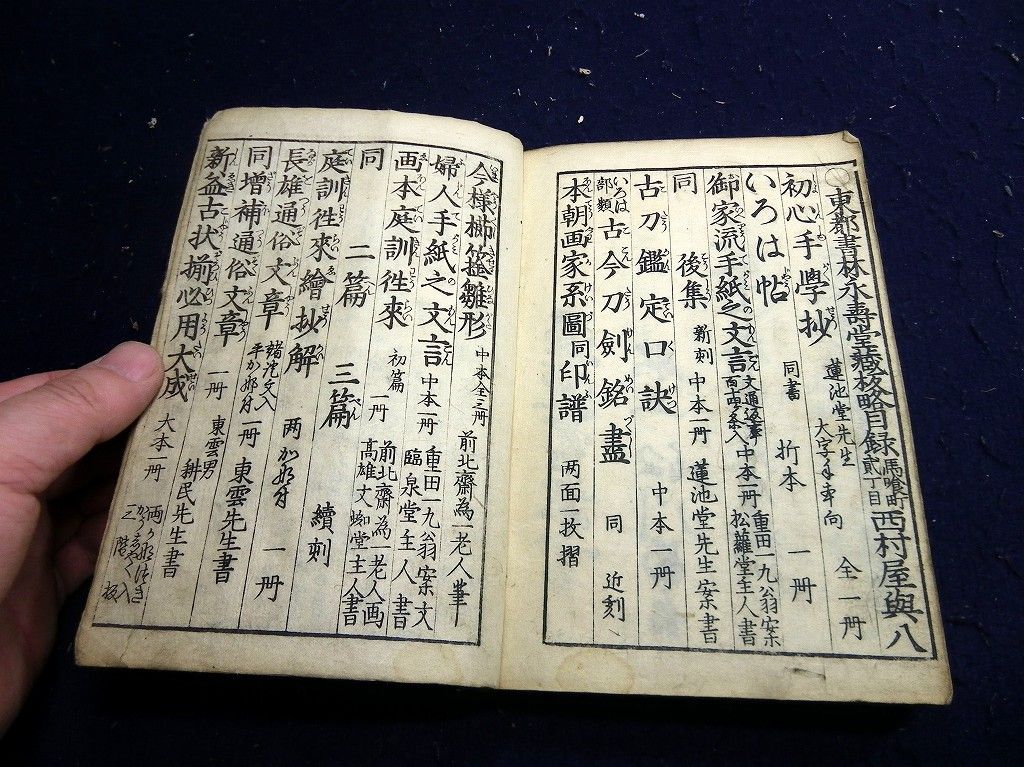 東都書林永壽堂藏板略目録 馬喰町貳丁目 西村屋與八
初心手學抄 蓮池堂先生 大字 全一冊
いろは帖 同書 折本 一冊
御家流手紙之文言 文通返事百兩条入 中本一冊 重田一九翁案 松蘿堂主人書
同 後集 新刺 中本一冊 蓮池堂先生案書
古刀鑑定口訣 中本一冊
いろは部類 古今刀劍銘盡 同 近刻
本朝画家系圖 同印譜 两面一枚摺
今様櫛𥫣雛形 中本全三冊 前北齋為一老人筆
婦人手紙之文言 中本一冊 重田一九翁案文 臨泉堂主人書
画本庭訓徃來 初篇 一冊 前北齋為一老人画 高雄文蜘堂主人書
同 二篇 三篇 續刺
庭訓徃來繪抄解 两かな付 一冊
長雄通俗文章 諸沱文入 平かな付 一冊 東雲先生書
同増補通俗文章 一冊 東雲男 耕民先生書
新益古状揃必用大成 大本一冊